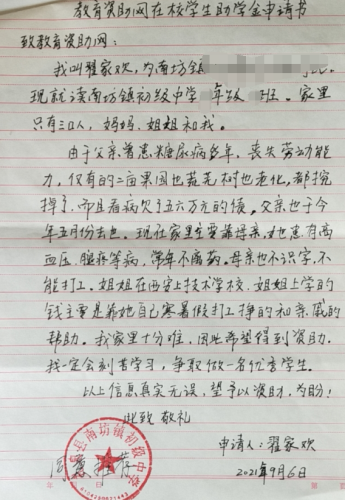 教育资助网在校学生助学金申请书
致教育资助网：
我叫翟家欢，为南坊镇
现就读南坊镇初级中学 年级 班。家里
只有三口人，妈妈、姐姐和我。
由于父亲曾患糖尿病多年，丧失劳动能
力，仅有的二亩果园也荒芜树也老化，都挖
掉了，而且看病欠了五六万元的债。父亲也于今
年五月份去世。现在家里主要靠母亲，她患有高
血压、腿疼等病，常年不离药。母亲也不识字，不
能打工。姐姐在西安上技术学校，姐姐上学的
钱主要是靠她自己寒暑假打工挣的和亲戚的
帮助。我家里十分难，因此希望得到资助。
我一定会刻苦学习，争取做一名优秀学生。
以上信息真实无误，望予以资助，为盼！
此致 敬礼
申请人：翟家欢
2021年9月6日
县南坊镇初级中学